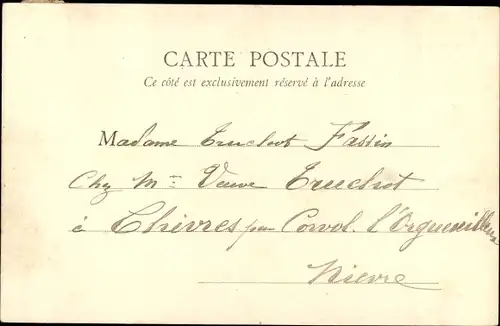 CARTE POSTALE
Ce côté est exclusivement réservé à l'adresse
Madame Truchot Fassin
Chez Mme Veuve Truchot
à Chèvres par Corvol l'Orgueilleux
Nièvre